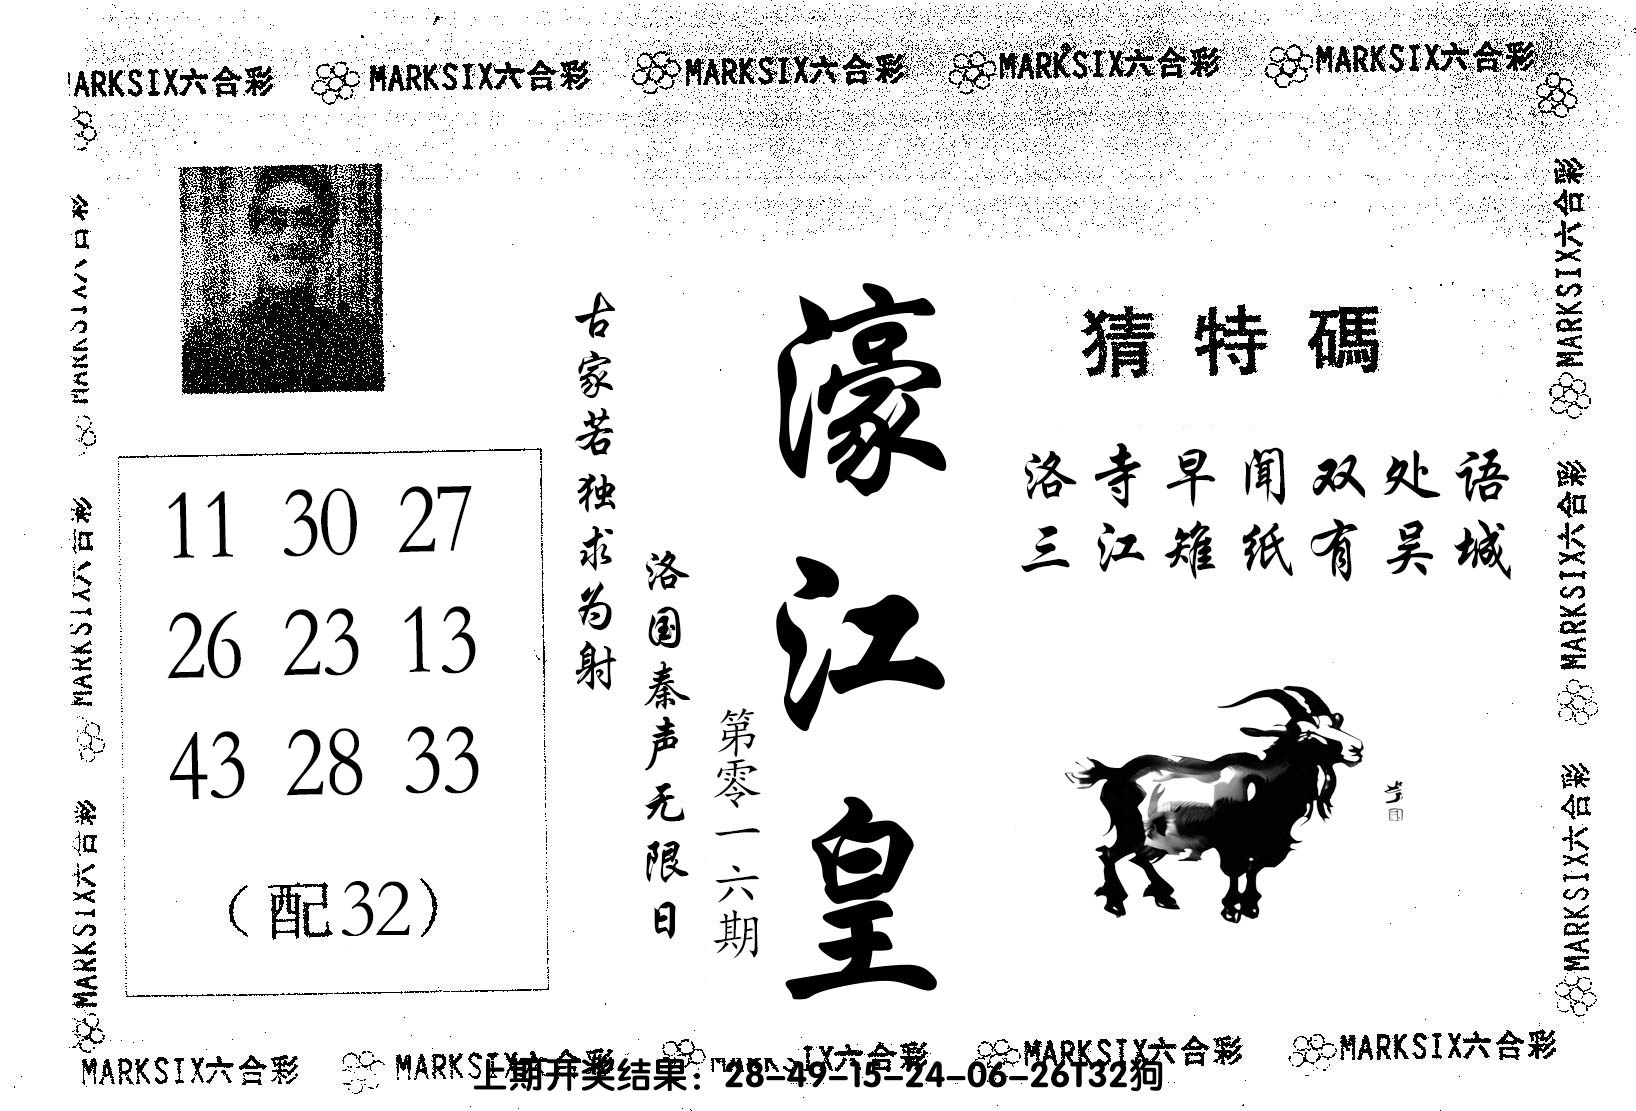 MARKSIX六合彩 MARKSIX六合彩 MARKSIX六合彩 MARKSIX六合彩 MARKSIX六合彩
MARKSIX六合彩
MARKSIX六合彩
MARKSIX六合彩
MARKSIX六合彩
MARKSIX六合彩
MARKSIX六合彩
猜特碼
洛寺早闻双处语
三江雉纸有吴城
濠江皇
第零一六期
洛国秦声无限日
古家若独求为射
11 30 27
26 23 13
43 28 33
（配32）
MARKSIX六合彩 MARKSIX六合彩 MARKSIX六合彩 MARKSIX六合彩 MARKSIX六合彩
上期开奖结果：28-49-15-24-06-26T32狗